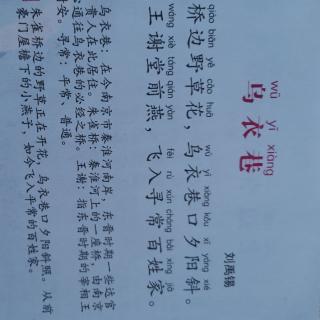 wū yī xiàng
乌衣巷
刘禹锡
qiáo biān yě cǎo huā wū yī xiàng kǒu xī yáng xié
桥边野草花，乌衣巷口夕阳斜。
wáng xiè táng qián yàn fēi rù xún cháng bǎi xìng jiā
王谢堂前燕，飞入寻常百姓家。
乌衣巷，在今南京市秦淮河南岸，东晋时期一些达官
贵人在此居住。朱雀桥：秦淮河上的一座桥，由南京
通往乌衣巷的必经之桥。王谢：指东晋时期的宰相王
安。寻常：平常、普通。
朱雀桥边的野草正在开花，乌衣巷口夕阳斜照。从前
豪门屋檐下的小燕子，如今飞入平常的百姓家。